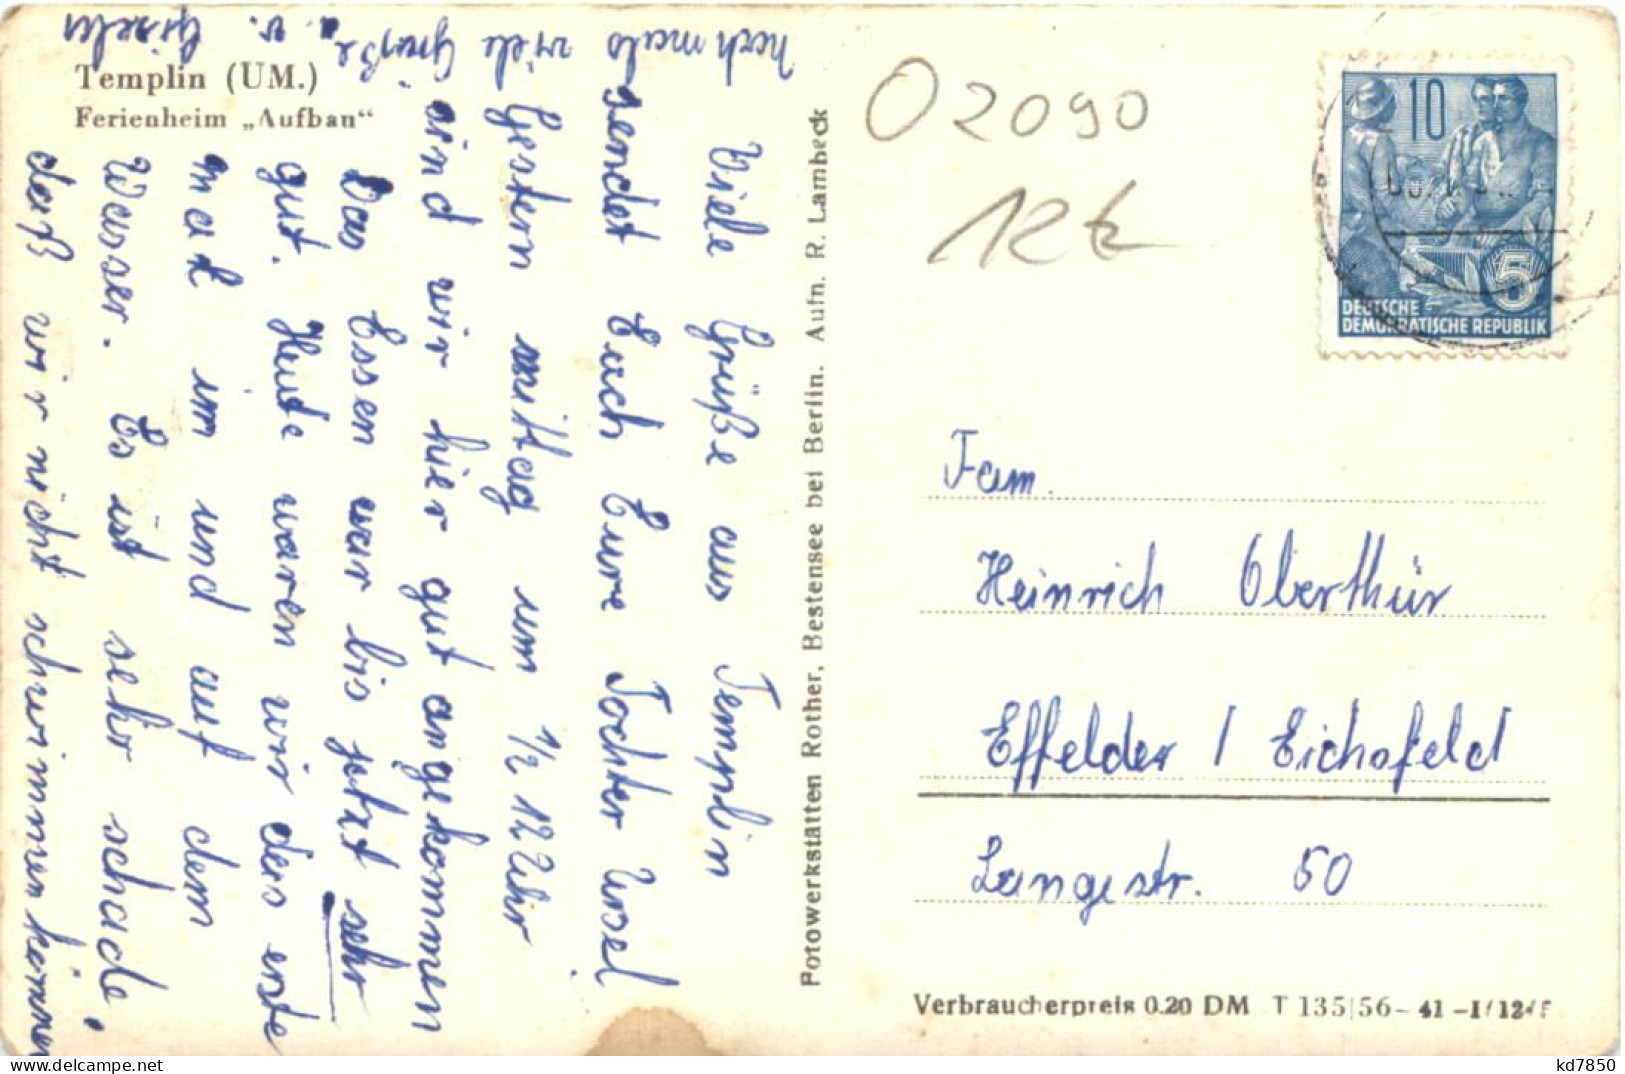 Templin (UM.)
Ferienheim „Aufbau“
Viele Grüße aus Templin
sendet Euch Eure Tochter Ursel
Gestern mittag um 1/2 12 Uhr
sind wir hier gut angekommen
Das Essen war bis jetzt sehr
gut. Heute waren wir das erste
mal im und auf dem
Wasser. Es ist sehr schade,
daß wir nicht schwimmen können
nochmals viele Grüße
u. v. Gisela
Fotowerkstätten Rother, Bestensee bei Berlin. Aufn. R. Lambeck
02090
10
5
DEUTSCHE
DEMOKRATISCHE REPUBLIK
Fam.
Heinrich Oberthür
Effelder / Eichsfeld
Langestr. 50
Verbraucherpreis 0.20 DM T 135|56 - 41 - I/12/
kd7850